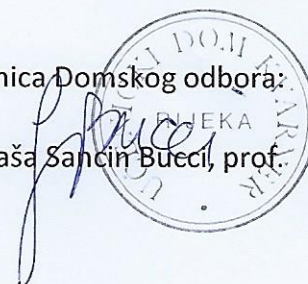 nica Domskog odbora:
aša Sančin Bucci, prof.
UČENIČKI DOM KVARNER
RIJEKA
Bucci